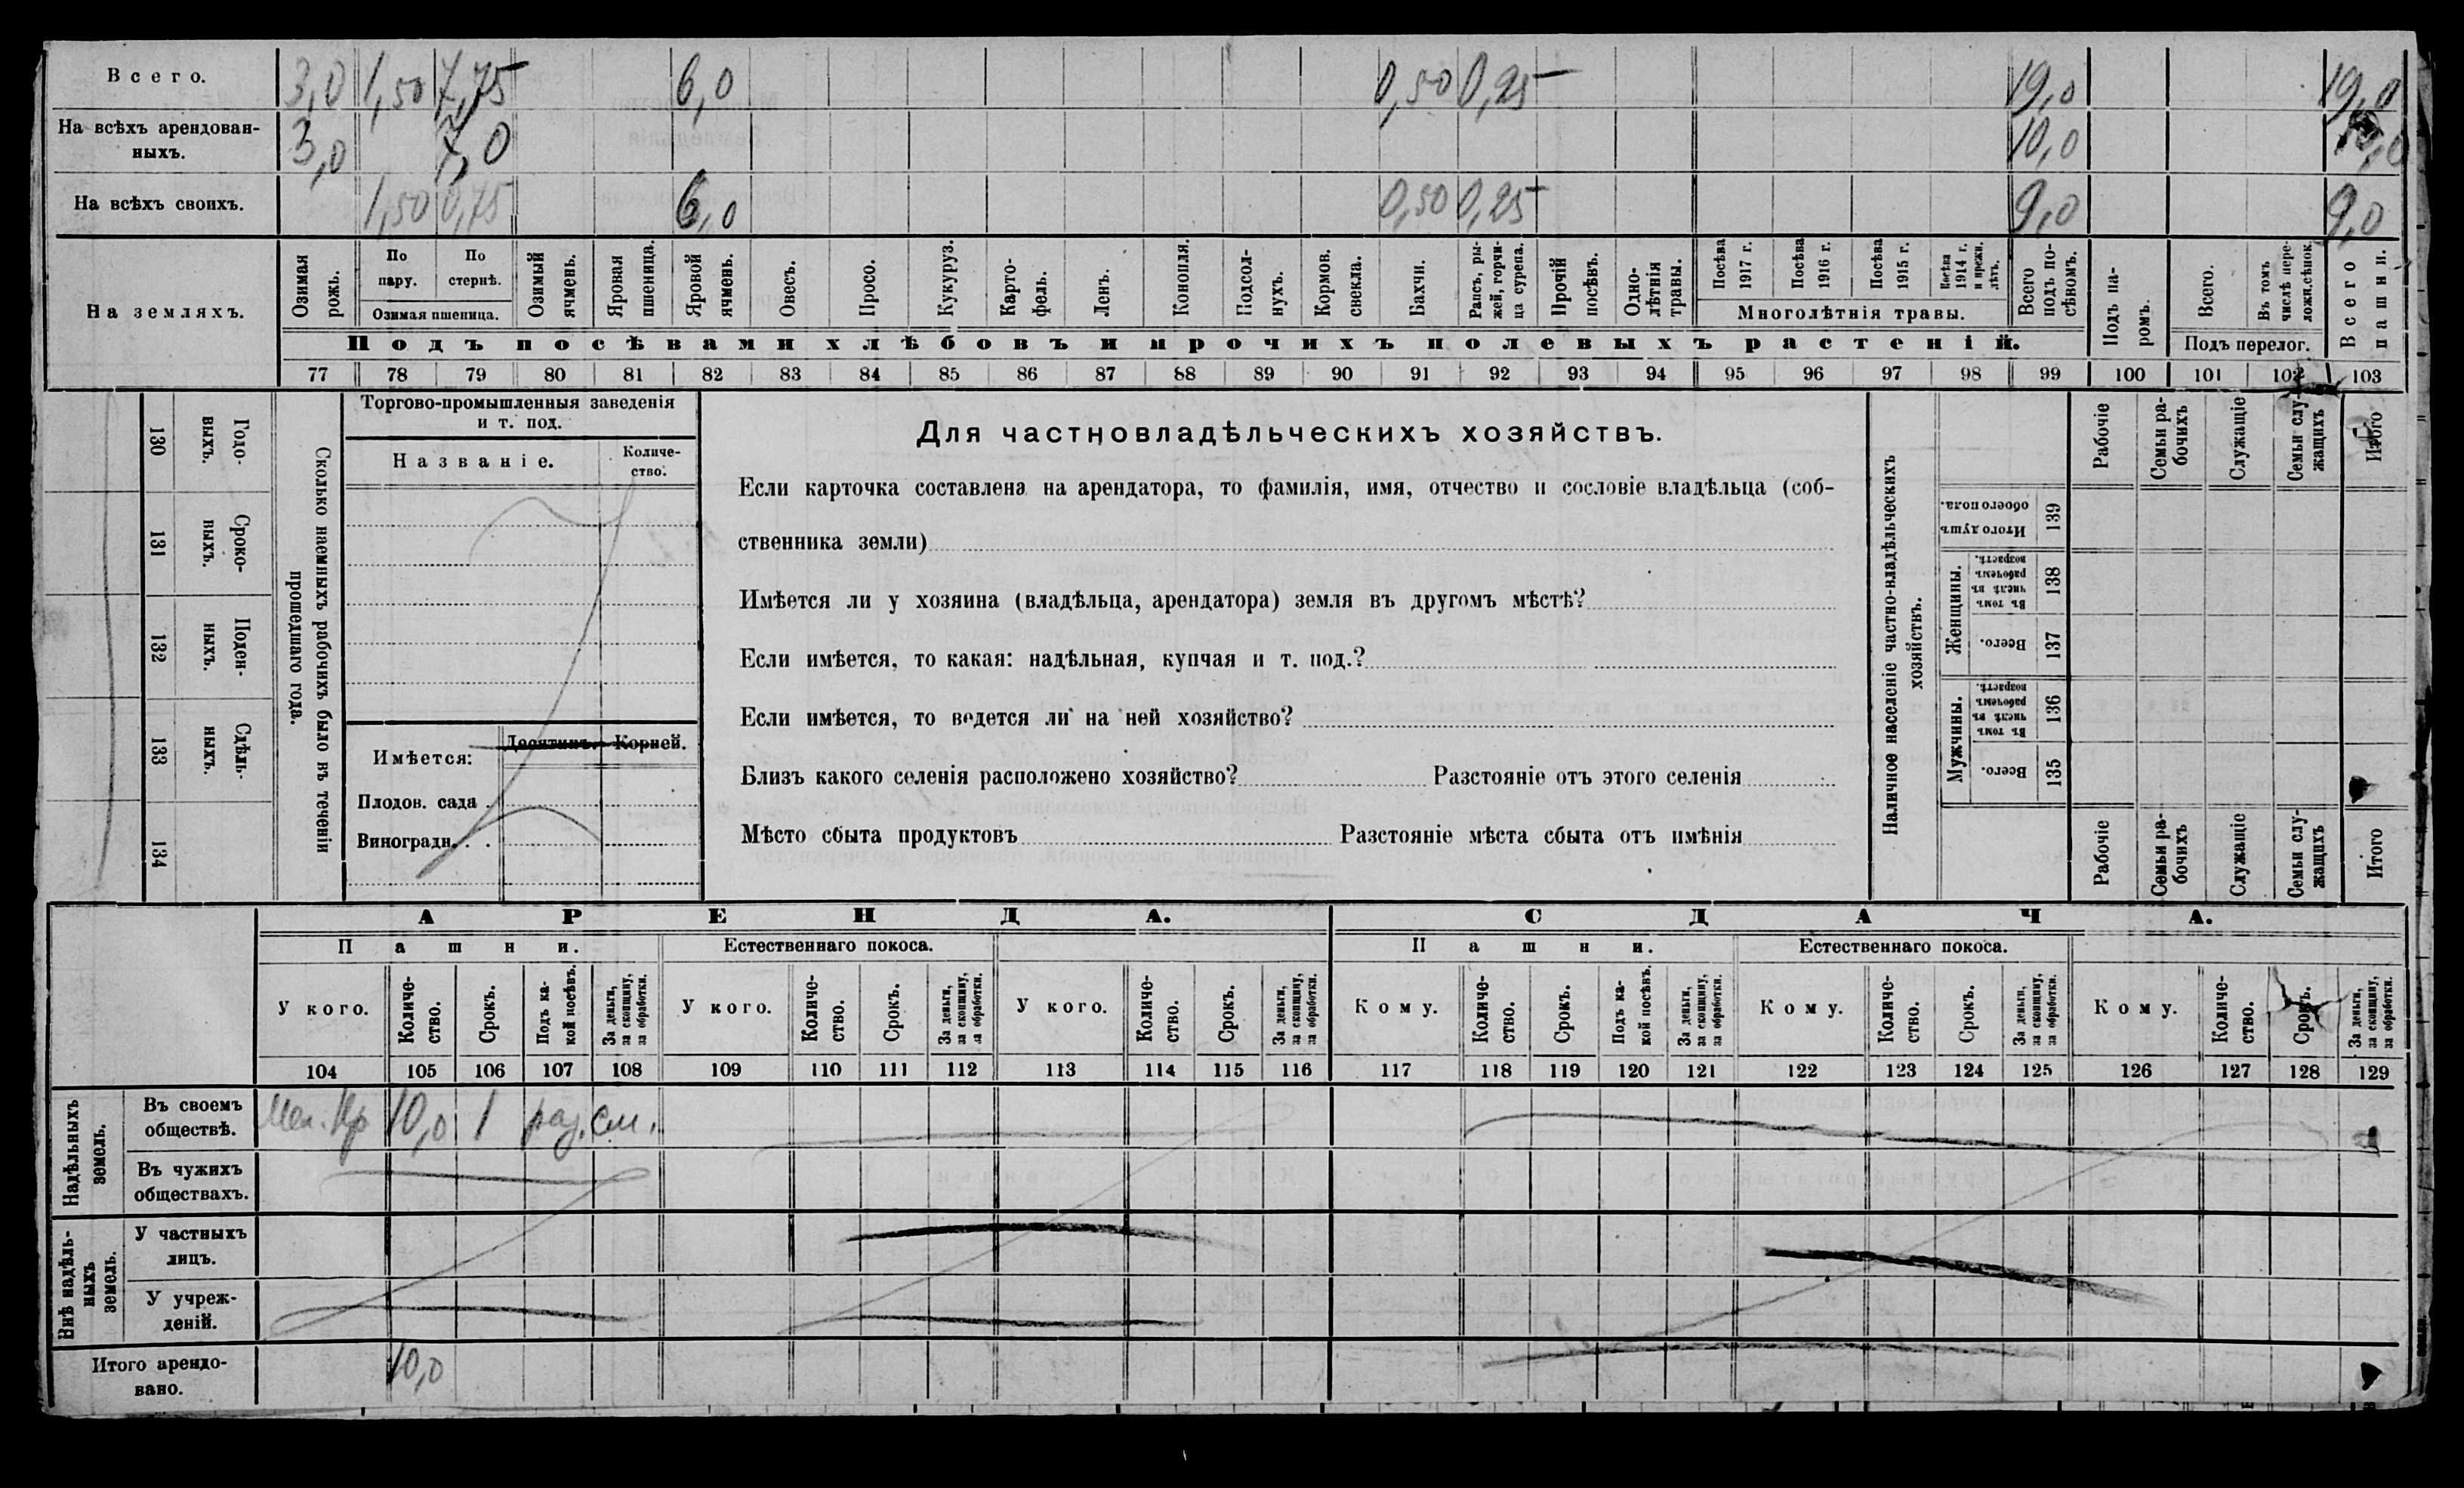 Всего. 3,0 1,50 7,75 6,0 0,50 0,25 19,0 19,0
На всѣхъ арендован-
ныхъ. 3,0 7,0 10,0 10,0
На всѣхъ своихъ. 1,50 0,75 6,0 0,50 0,25 9,0 9,0
На земляхъ.
Озимая рожь.
По пару.
По стернѣ.
Озимая пшеница.
Озимый ячмень.
Яровая пшеница.
Яровой ячмень.
Овесъ.
Просо.
Кукуруз.
Карто-
фель.
Ленъ.
Конопля.
Подсол-
нухъ.
Кормов. свекла.
Бахчи.
Рапсъ, ры-
жей, горчи-
ца сурепа.
Прочій посѣвъ.
Одно-
лѣтнія травы.
Посѣва 1917 г.
Посѣва 1916 г.
Посѣва 1915 г.
Посѣва 1914 г. и прежн. лѣтъ.
Многолѣтнія травы.
Всего подъ по-
сѣвомъ.
Подъ па-
ромъ.
Всего.
Въ томъ числѣ пере-
ложн. сѣнок.
Подъ перелог.
Всего пашни.
Подъ посѣвами хлѣбовъ и прочихъ полевыхъ растеній.
77 78 79 80 81 82 83 84 85 86 87 88 89 90 91 92 93 94 95 96 97 98 99 100 101 102 103
130 Годо-
выхъ.
131 Сроко-
выхъ.
132 Поден-
ныхъ.
133 Сдѣль-
ныхъ.
134
Сколько наемныхъ рабочихъ было въ теченіи
прошедшаго года.
Торгово-промышленныя заведенія
и т. под.
Названіе.
Количе-
ство.
Имѣется:
Десятинъ. Корней.
Плодов. сада .
Виноградн. . .
Для частновладѣльческихъ хозяйствъ.
Если карточка составлена на арендатора, то фамилія, имя, отчество и сословіе владѣльца (соб-
ственника земли)
Имѣется ли у хозяина (владѣльца, арендатора) земля въ другомъ мѣстѣ?
Если имѣется, то какая: надѣльная, купчая и т. под.?
Если имѣется, то ведется ли на ней хозяйство?
Близъ какого селенія расположено хозяйство? Разстояніе отъ этого селенія
Мѣсто сбыта продуктовъ Разстояніе мѣста сбыта отъ имѣнія
Наличное населеніе частно-владѣльческихъ
хозяйствъ.
Рабочіе
Семьи ра-
бочихъ
Служащіе
Семьи слу-
жащихъ
Итого
Итого душъ
обоего пола.
139
Женщины.
Въ томъ числѣ въ рабочемъ возрастѣ.
138
Всего.
137
Мужчины.
Въ томъ числѣ въ рабочемъ возрастѣ.
136
Всего.
135
Рабочіе
Семьи ра-
бочихъ
Служащіе
Семьи слу-
жащихъ
Итого
АРЕНДА. СДАЧА.
Пашни. Естественнаго покоса. Пашни. Естественнаго покоса.
У кого.
Количе-
ство.
Срокъ.
Подъ ка-
кой посѣвъ.
За деньги,
за скопщину,
за обработки.
У кого.
Количе-
ство.
Срокъ.
За деньги,
за скопщину,
за обработки.
У кого.
Количе-
ство.
Срокъ.
За деньги,
за скопщину,
за обработки.
Кому.
Количе-
ство.
Срокъ.
Подъ ка-
кой посѣвъ.
За деньги,
за скопщину,
за обработки.
Кому.
Количе-
ство.
Срокъ.
За деньги,
за скопщину,
за обработки.
Кому.
Количе-
ство.
Срокъ.
За деньги,
за скопщину,
за обработки.
104 105 106 107 108 109 110 111 112 113 114 115 116 117 118 119 120 121 122 123 124 125 126 127 128 129
Надѣльныхъ
земель.
Въ своемъ
обществѣ. 10,0 1 раз. см.
Въ чужихъ
обществахъ.
Внѣ надѣль-
ныхъ
земель.
У частныхъ
лицъ.
У учреж-
деній.
Итого арендо-
вано. 10,0